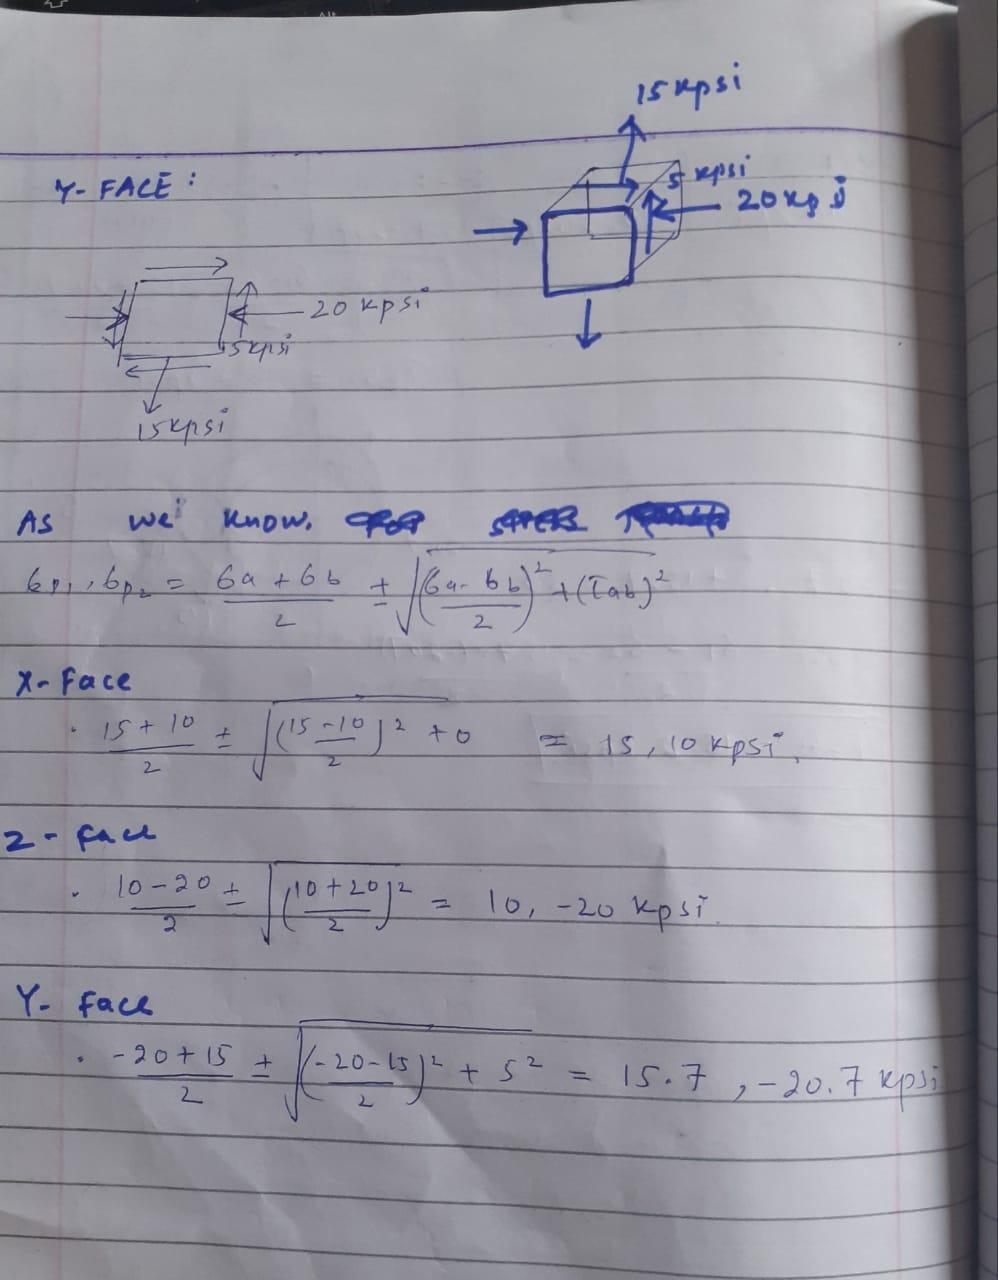 15 kpsi
Y-FACE :
5 kpsi
20 kpsi
20 kpsi
5 kpsi
15 kpsi
As we know,
6p₁, 6p₂ = 6a + 6b / 2 ± √(6a - 6b / 2)² + (Tab)²
X-Face
. 15 + 10 / 2 ± √(15 - 10 / 2)² + 0 = 15, 10 kpsi.
Z-face
. 10 - 20 / 2 ± √(10 + 20 / 2)² = 10, -20 kpsi.
Y-face
. -20 + 15 / 2 ± √(-20 - 15 / 2)² + 5² = 15.7, -20.7 kpsi